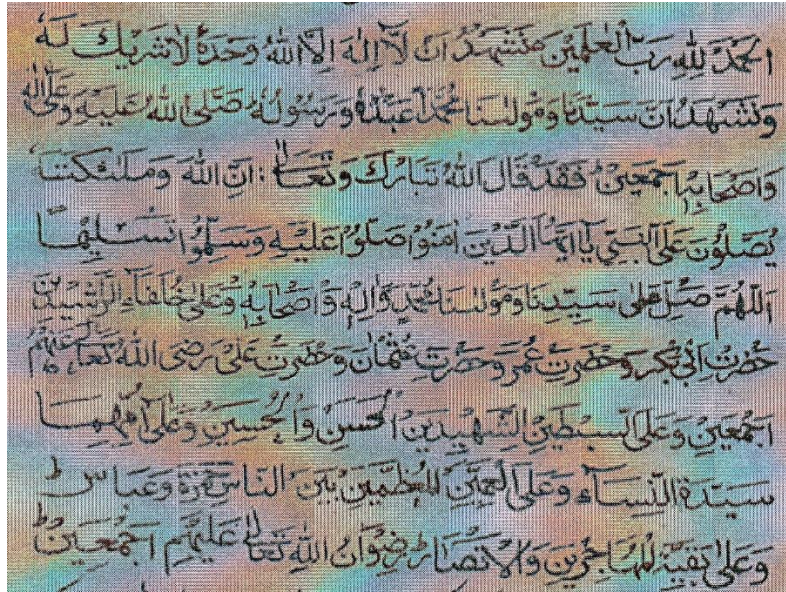 الحمد لله رب العلمين ونشهد ان لا اله الا الله وحده لا شريك له
ونشهد ان سيدنا ومولنا محمدا عبده ورسوله صلى الله عليه وعلى اله
واصحابه اجمعين فقد قال الله تبارك وتعالى : ان الله وملئكته
يصلون على النبي يا ايها الذين امنوا صلوا عليه وسلموا تسليما
اللهم صل على سيدنا ومولنا محمد واله واصحابه وعلى خلفاء الراشدين
حضرت ابى بكر وحضرت عمر وحضرت عثمان وحضرت على رضى الله تعالى عنهم
اجمعين وعلى السبطين الشهيدين الحسن والحسين وعلى امهما
سيدة النساء وعلى العمين المعظمين بين الناس حمزة وعباس
وعلى بقية المهاجرين والانصار رضوان الله تعالى عليهم اجمعين